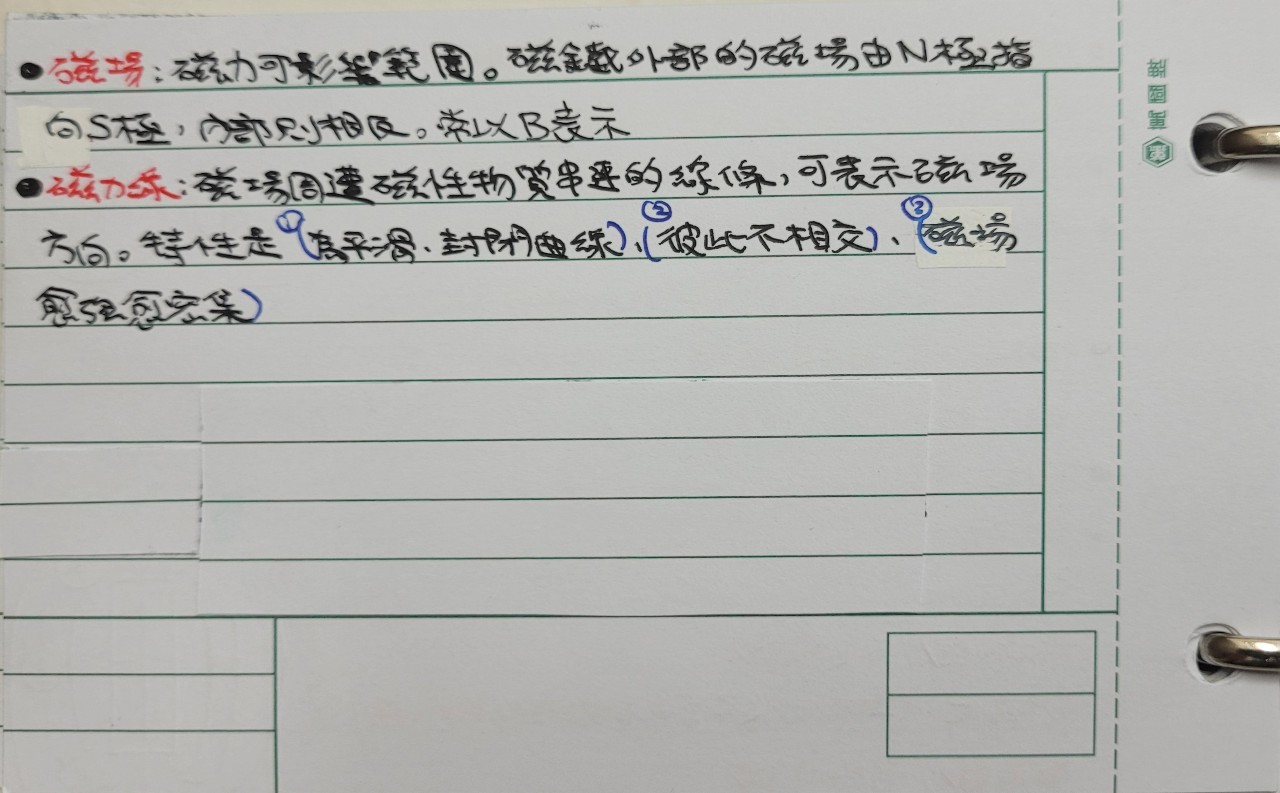 ●磁場:磁力可影響範圍。磁鐵外部的磁場由N極指
向S極,內部則相反。常以B表示
●磁力線:磁場周遭磁性物質串連的線條,可表示磁場
方向。特性是①(為平滑、封閉曲線)、②(彼此不相交)、③(磁場
愈強愈密集)
萬國牌